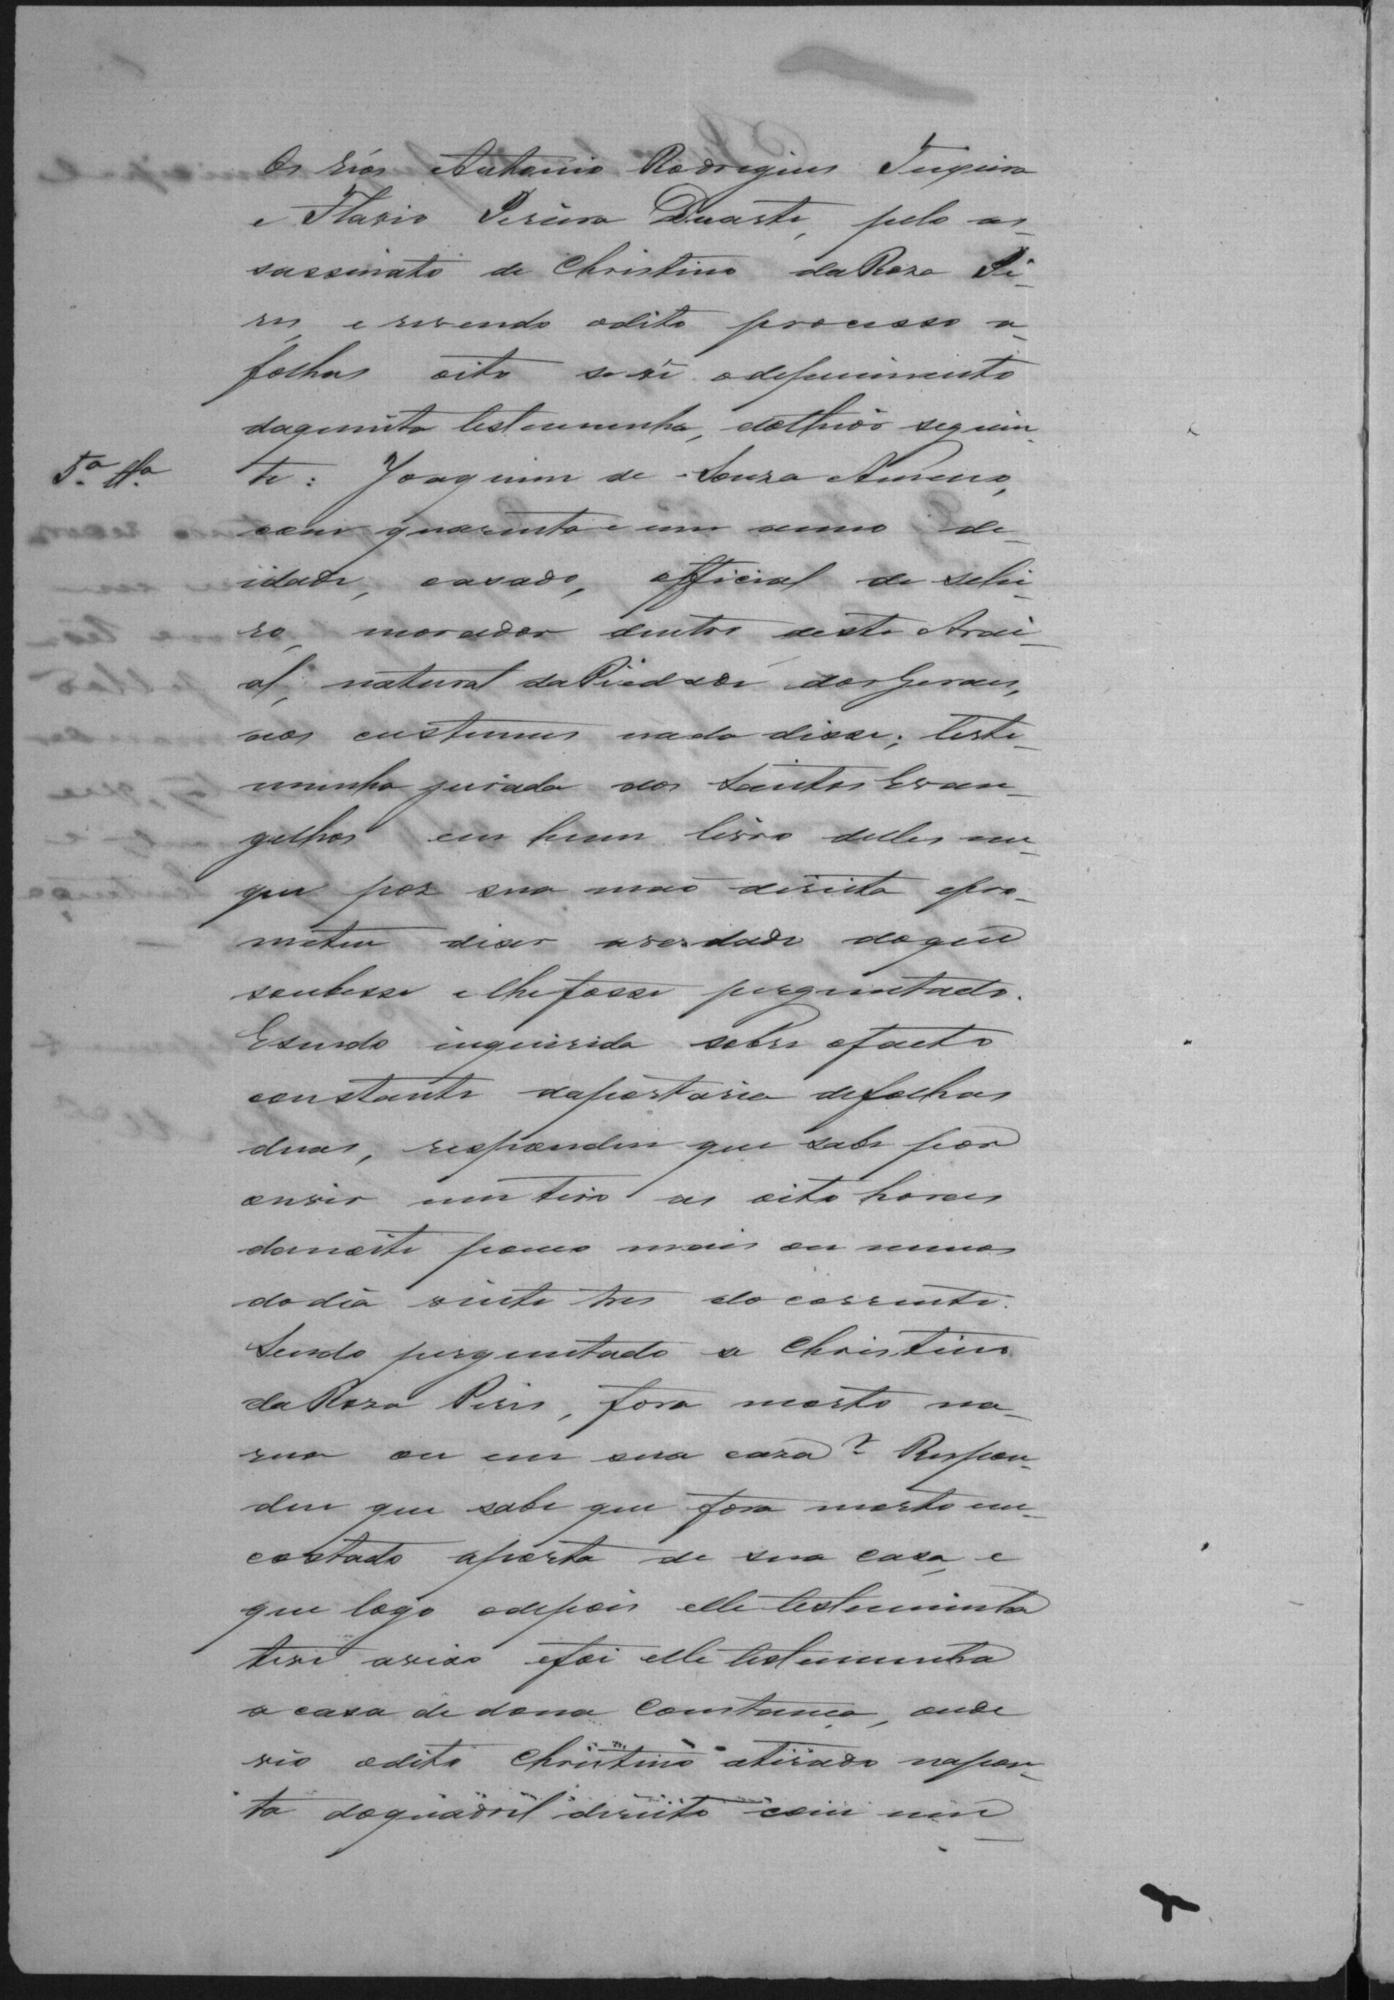 Os réos Antonio Rodrigues Teixeira
e Flavio Pereira Duarte, pelo as-
sassinato de Christino da Roza Pi-
res, e revendo odito processo a-
folhas oito se vê odepuimento
daquinta testemunha, dotheôr seguin-
5.ª tt.ª te: Joaquim de Souza Ameno,
com quarenta e um anno de-
idade, casado, official de selei-
ro, morador dentro deste Arrai-
al, natural da Piedade dos Geraes,
aos custumes nada disse; teste-
munha jurada aos Santos Evan-
gelhos em hum livro delles em-
que poz sua mão direita epro-
meteu diser averdade doque
soubesse elhe fosse perguntado.
Esendo inquirida sobre ofacto
constante daportaria defolhas
duas, respondeu que sabe por
ouvir um tiro as oito horas
danoite pouco mais ou menos
dodia vinte tres do corrente.
Sendo perguntado se Christino
da Roza Pires, fora morto na-
rua ou em sua caza? Respon-
deu que sabe que fora morto en-
costado aporta de sua casa, e
que logo adepois elle testemunha
teve aviso efoi elle testemunha
a casa de dona Constança, onde
vio odito Christino atirado napon-
ta doquadril direito com um